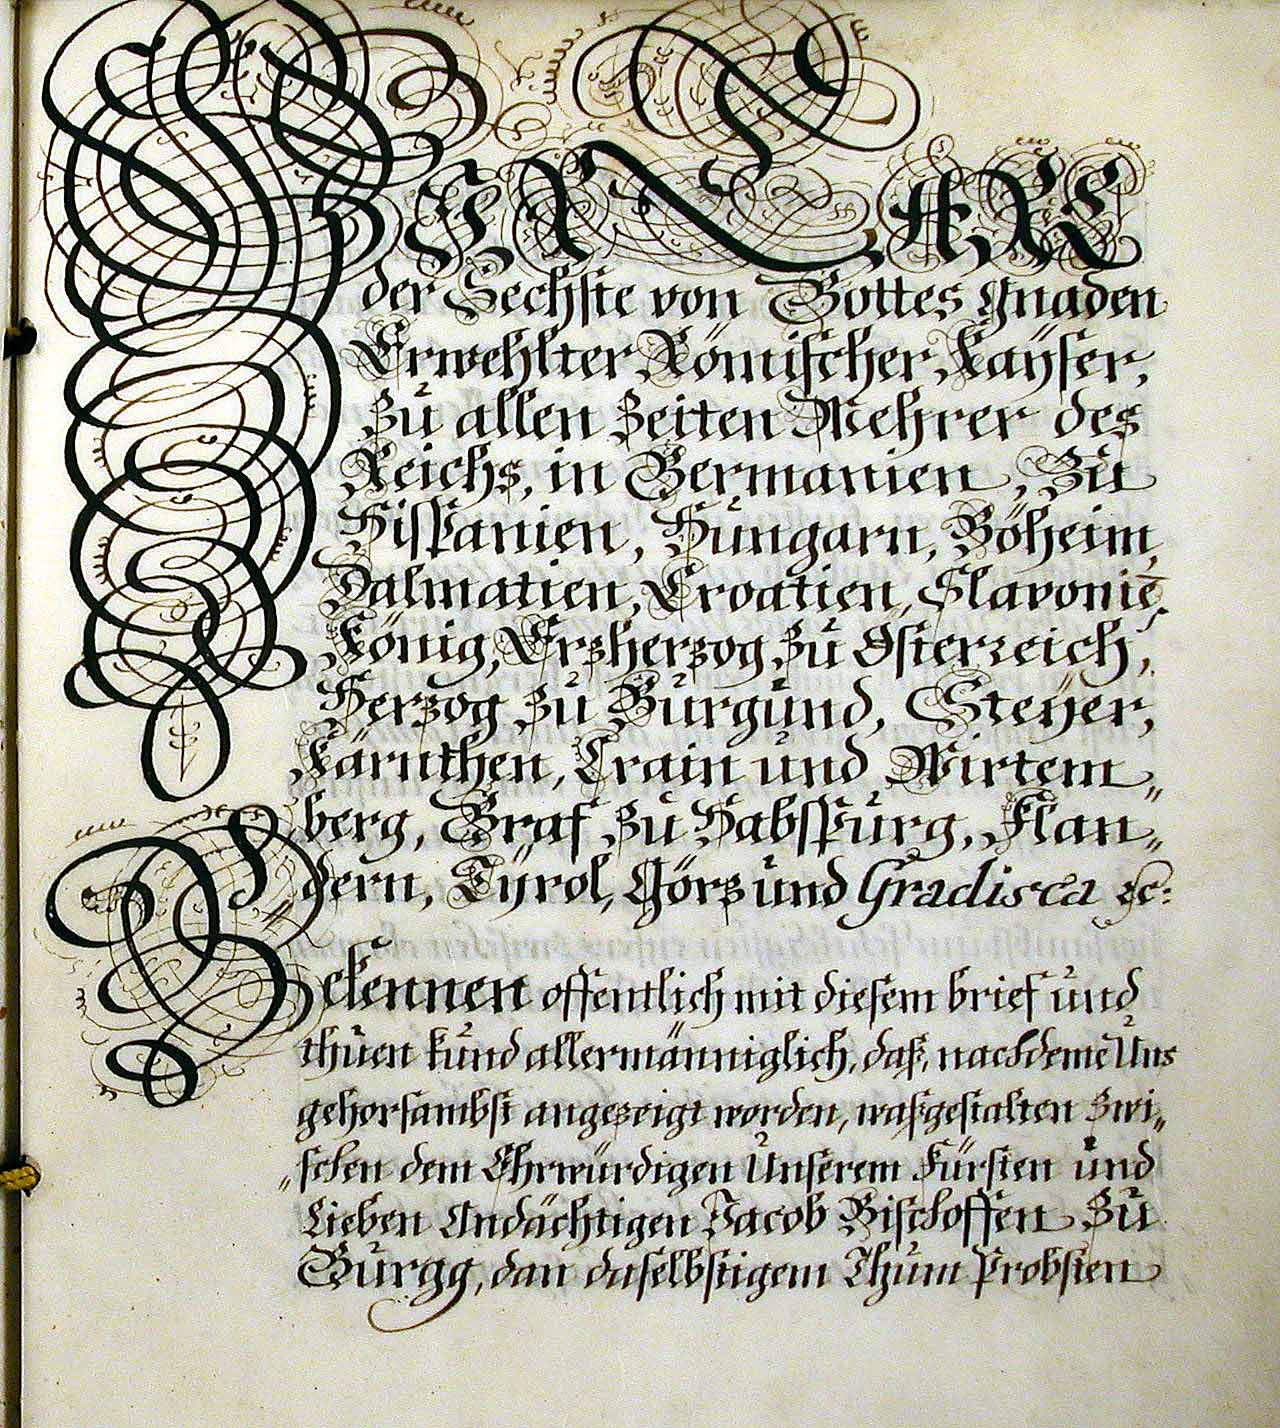 WIR CARL
der Sechste von Gottes Gnaden
Erwehlter Römischer Kaÿser,
zu allen Zeiten Mehrer des
Reichs, in Germanien, Zu
Hispanien, Hungarn, Böheim,
Dalmatien, Croatien, Slavonie͞,
König, Erzherzog zu Österreich,
Herzog zu Burgund, Steÿer,
Kärnthen, Crain und Wirtem„
berg, Graf zu Habspurg, Flan„
„dern, Tÿrol, Görz und Gradisca ꝛc:
Bekennen offentlich mit diesem brief und
thuen kund allermänniglich, daß, nachdeme Uns
gehorsambst angezeigt worden, waßgestalten Zwi„
„schen dem Ehrwürdigen Unserem Fürsten und
Lieben Andächtigen Jacob Bischoffen zu
Gurgg, dan daselbstigem Thum Probsten